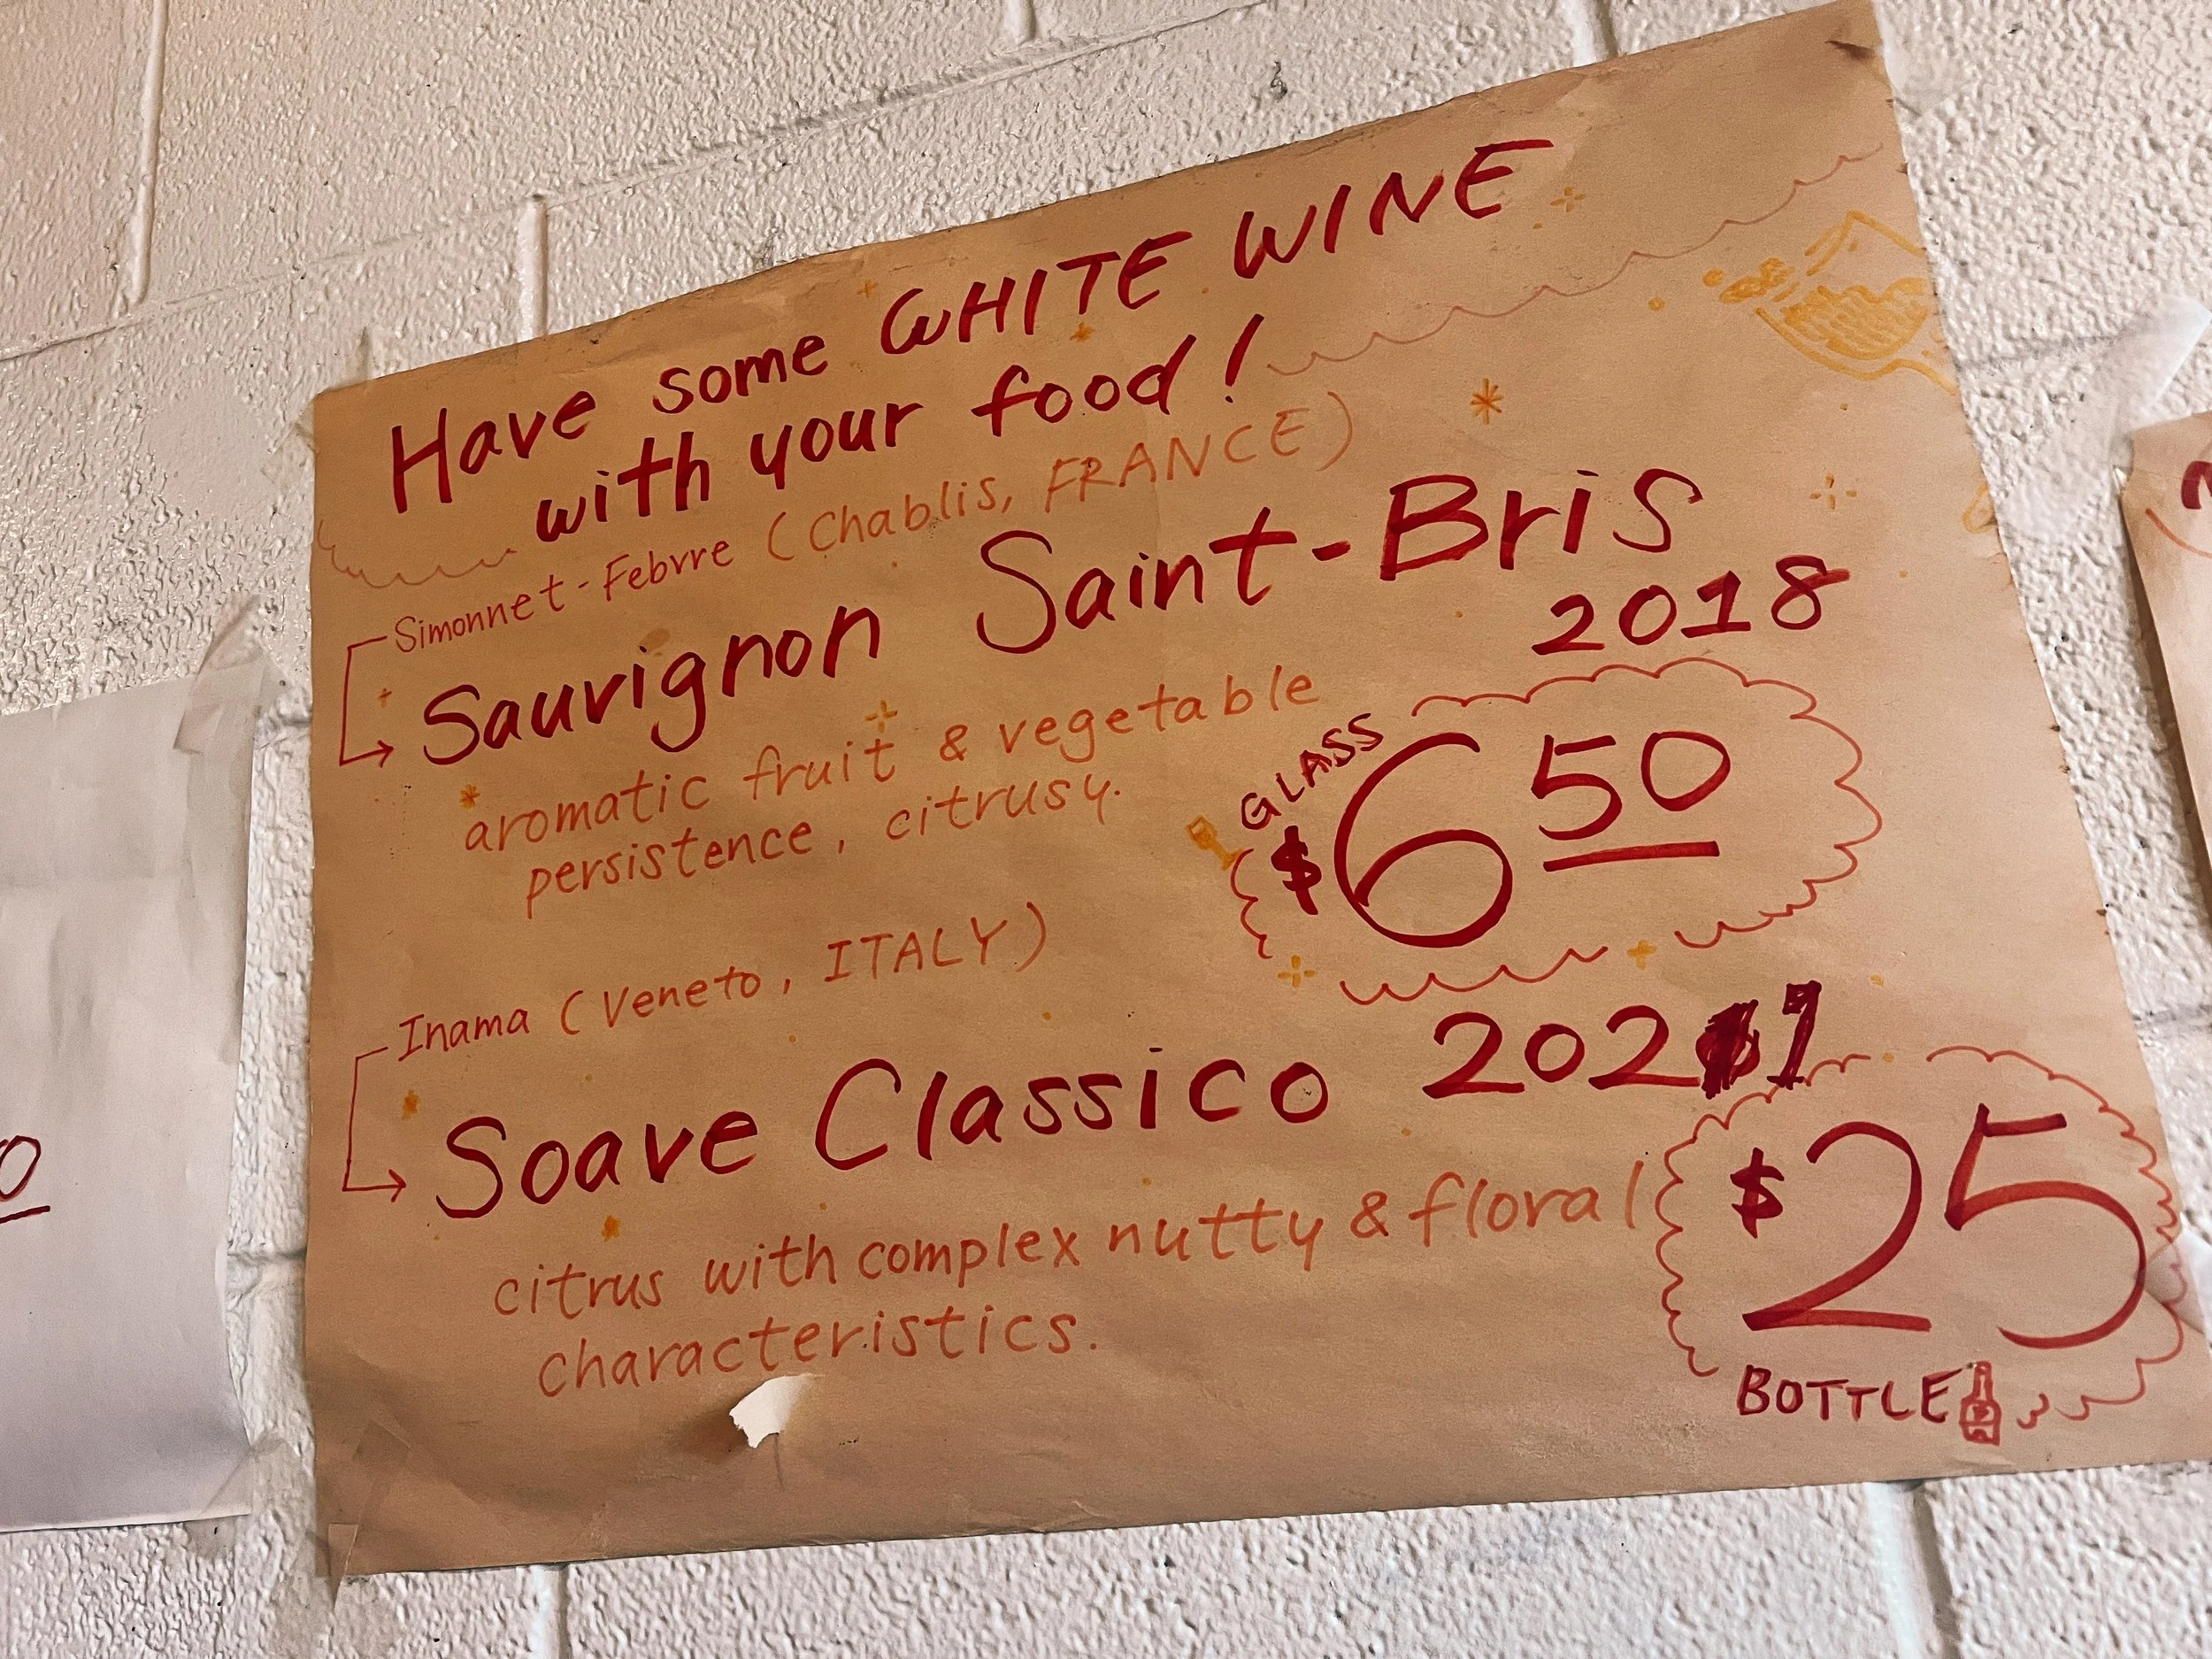 Have some WHITE WINE
with your food!
Simonnet-Febvre (Chablis, FRANCE)
Sauvignon Saint-Bris
2018
aromatic fruit & vegetable
persistence, citrusy.
GLASS
$6 50
Inama (Veneto, ITALY)
Soave Classico 2021
citrus with complex nutty & floral
characteristics.
$25
BOTTLE